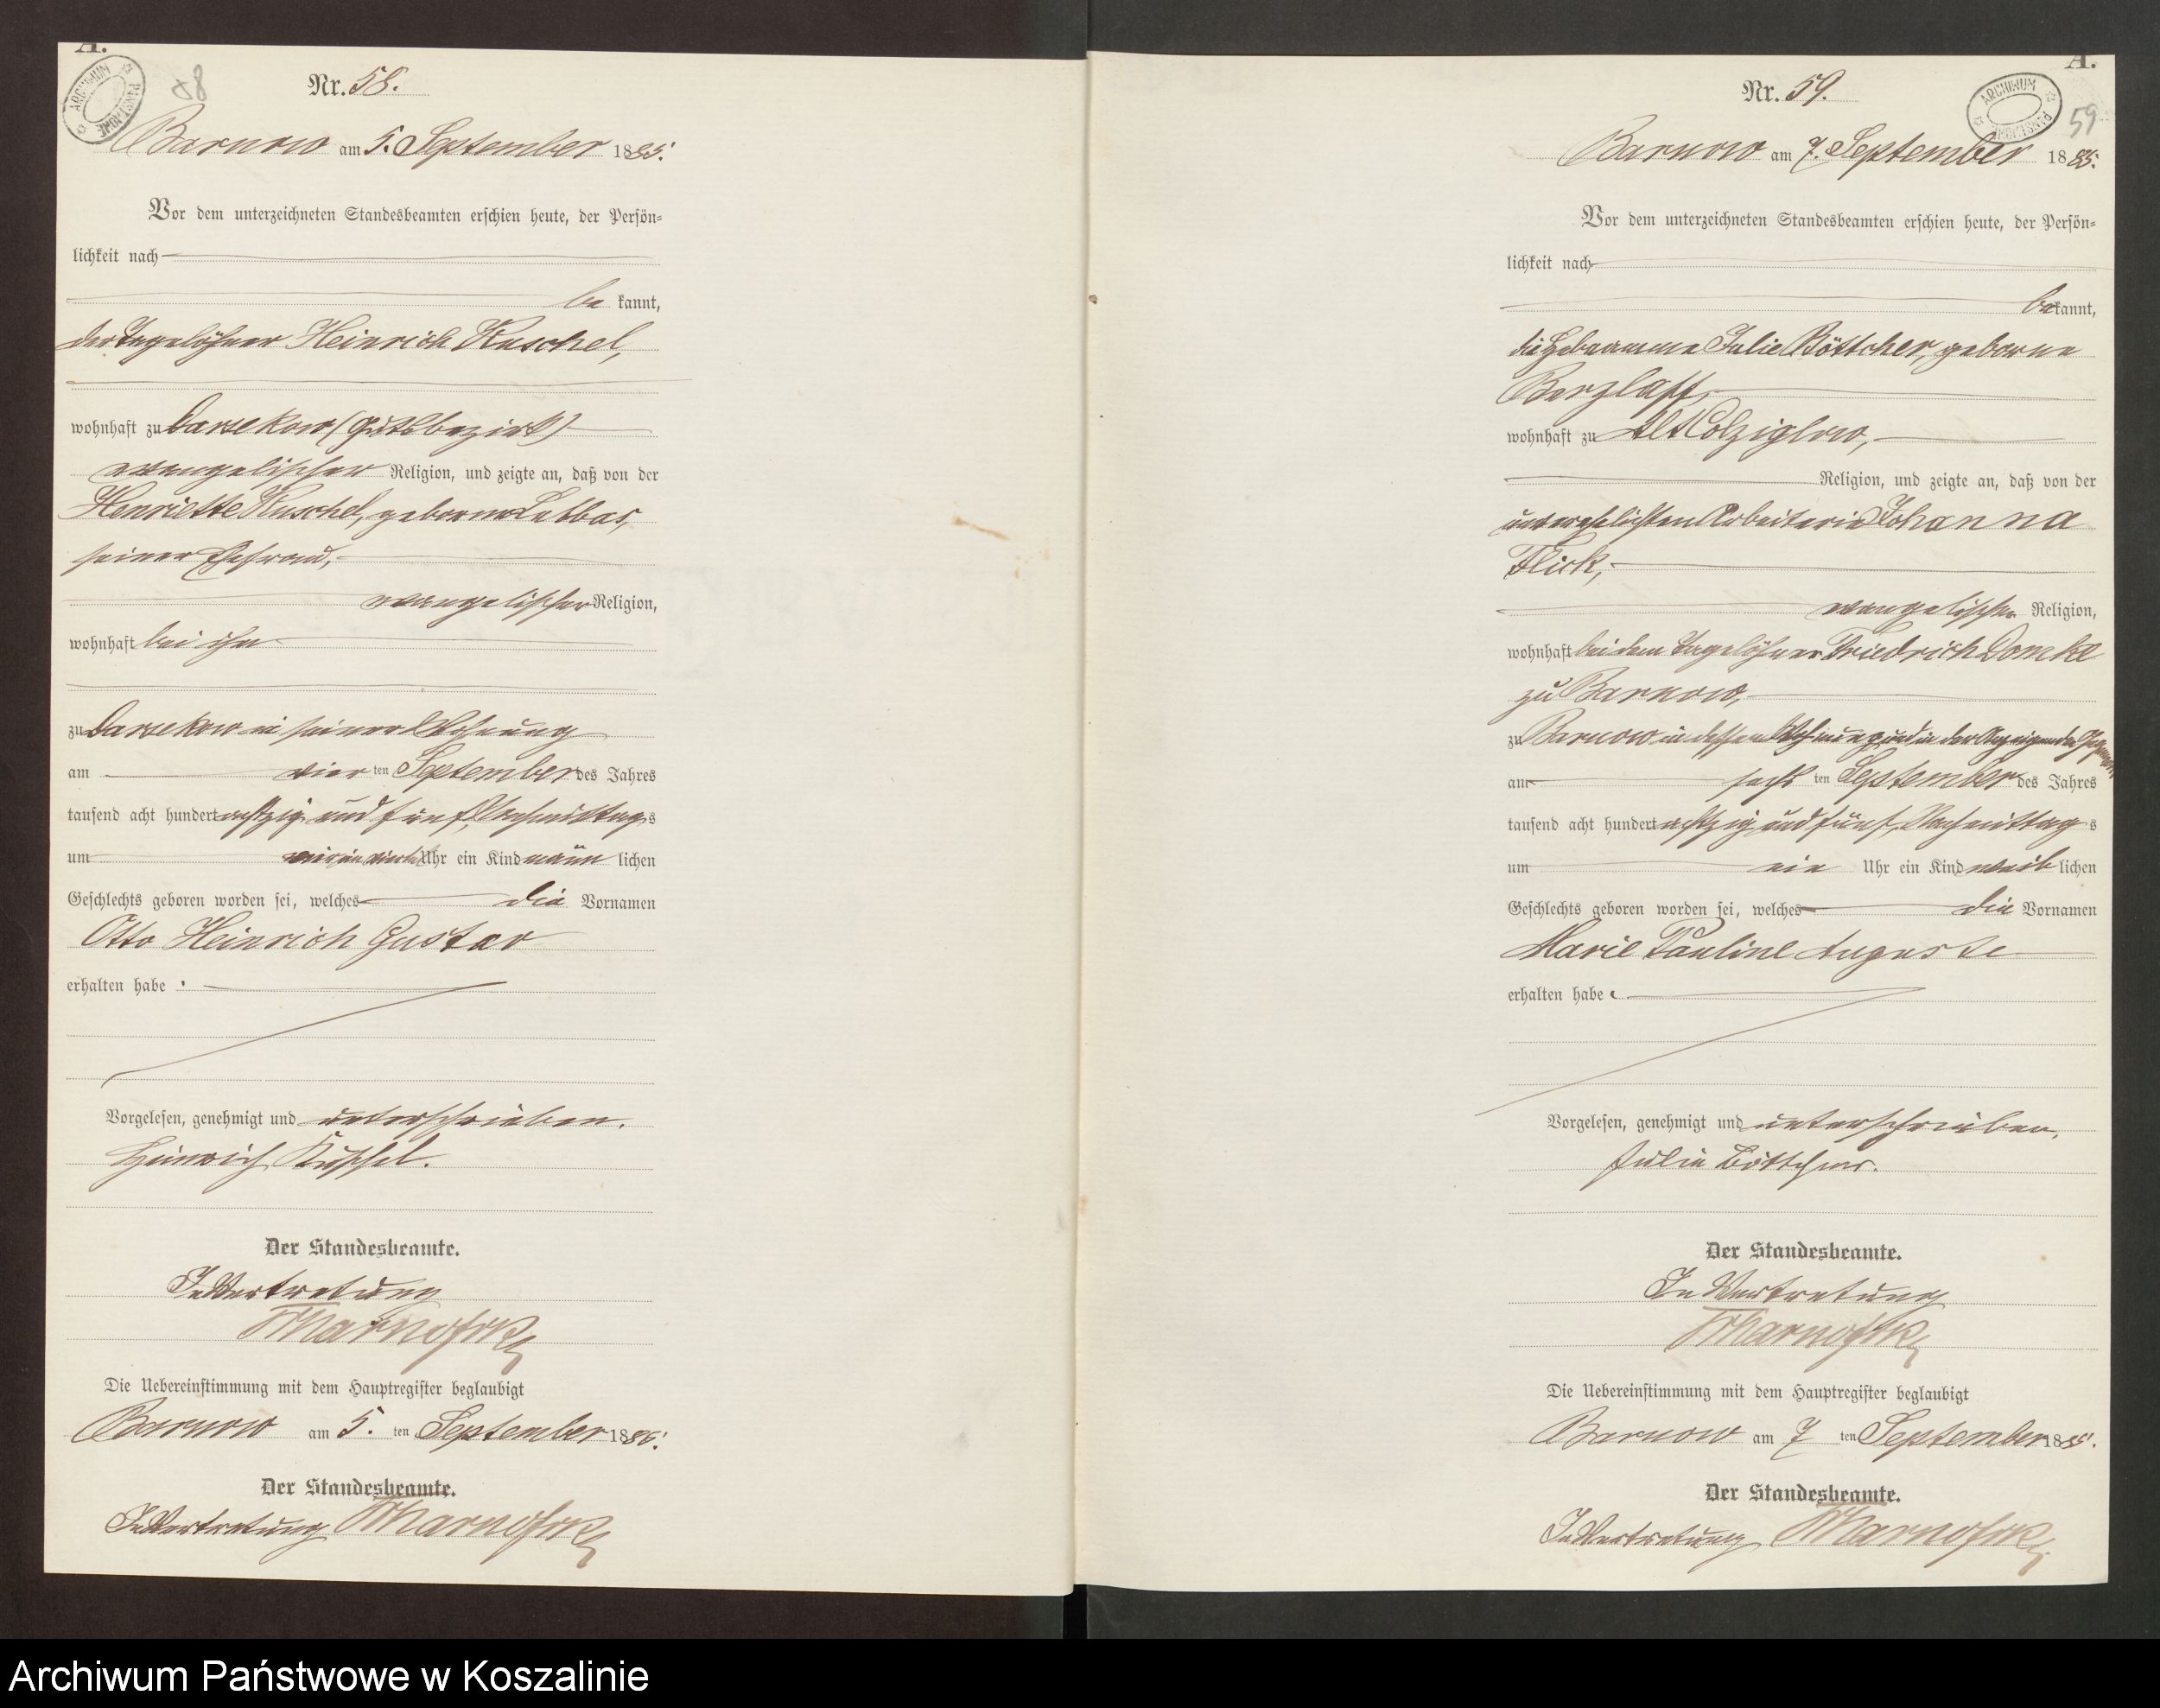 A.
ARCHIWUM PAŃSTWOWE
58
Nr. 58.
Barnow am 5. September 1885.
Vor dem unterzeichneten Standesbeamten erschien heute, der Persön-
lichkeit nach
be kannt,
der Tagelöhner Heinrich Kuschel,
wohnhaft zu Darsekow (Gutsbezirk)
evangelischer Religion, und zeigte an, daß von der
Henriette Kuschel, geborne Labbas,
seiner Ehefrau,
evangelischer Religion,
wohnhaft bei ihm
zu Darsekow in seiner Wohnung
am vier ten September des Jahres
tausend acht hundert achtzig und fünf, Nachmittags
um Uhr ein Kind männ lichen
Geschlechts geboren worden sei, welches die Vornamen
Otto Heinrich Gustav
erhalten habe.
Vorgelesen, genehmigt und unterschrieben.
Heinrich Kuschel.
Der Standesbeamte.
In Vertretung
Die Uebereinstimmung mit dem Hauptregister beglaubigt
Barnow am 5. ten September 1885.
Der Standesbeamte.
In Vertretung
A.
ARCHIWUM PAŃSTWOWE
59
Nr. 59.
Barnow am 7. September 1885.
Vor dem unterzeichneten Standesbeamten erschien heute, der Persön-
lichkeit nach
be kannt,
die Hebamme Julie Böttcher, geborne
Berzlaff,
wohnhaft zu Alt Colziglow,
Religion, und zeigte an, daß von der
unverehelichten Arbeiterin Johanna
Flick,
evangelischer Religion,
wohnhaft bei dem Tagelöhner Friedrich Domke
zu Barnow,
zu Barnow in dessen Wohnung und in der Anzeigenden Gegenwart
am sechs ten September des Jahres
tausend acht hundert achtzig und fünf, Nachmittags
um ein Uhr ein Kind weib lichen
Geschlechts geboren worden sei, welches die Vornamen
Marie Pauline Auguste
erhalten habe.
Vorgelesen, genehmigt und unterschrieben.
Julie Böttcher.
Der Standesbeamte.
In Vertretung
Die Uebereinstimmung mit dem Hauptregister beglaubigt
Barnow am 7 ten September 1885.
Der Standesbeamte.
In Vertretung
Archiwum Państwowe w Koszalinie